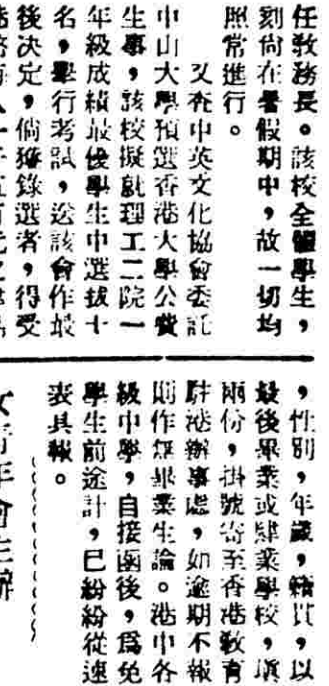 任敎務長。該校全體學生，
刻尙在暑假期中，故一切均
照常進行。
又査中英文化協會委託
中山大學預選香港大學公費
生事，該校擬就理工二院一
年級成績最優學生中選拔十
名，舉行考試，送該會作最
後決定，倘獲錄選者，得受
，性別，年歲，籍貫，以
最後畢業或肄業學校，塡
兩份，掛號寄至香港敎育
駐港辦事處，如逾期不報
則作無畢業生論。港中各
級中學，自接函後，爲免
學生前途計，已紛紛從速
表具報。
女靑年會主辦